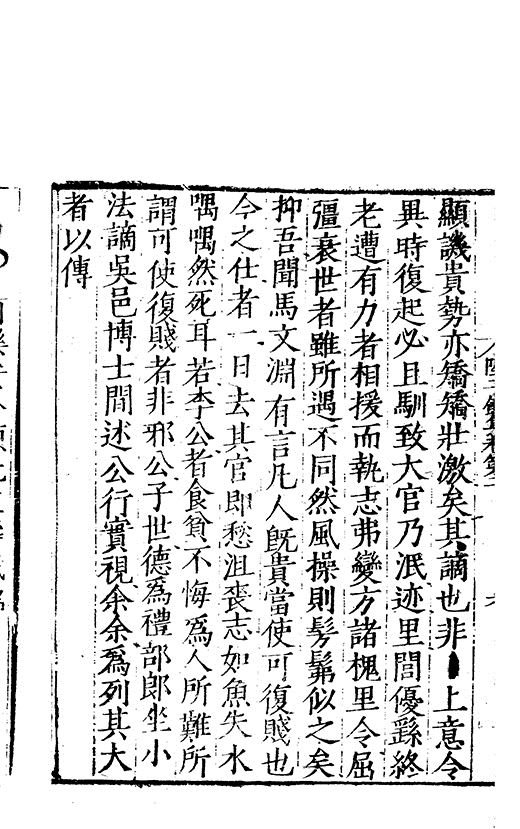 顯譏貴勢亦矯矯壯激矣其謫也非上意令
異時復起必且馴致大官乃泯迹里閭優繇終
老遭有力者相援而執志弗變方諸槐里令屈
彊衰世者雖所遇不同然風操則髣髴似之矣
抑吾聞馬文淵有言凡人旣貴當使可復賤也
今之仕者一日去其官即愁沮喪志如魚失水
喁喁然死耳若李公者食貧不悔為人所難所
謂可使復賤者非邪公子世德為禮部郎坐小
法謫吳邑博士間述公行實視余余為列其大
者以傳